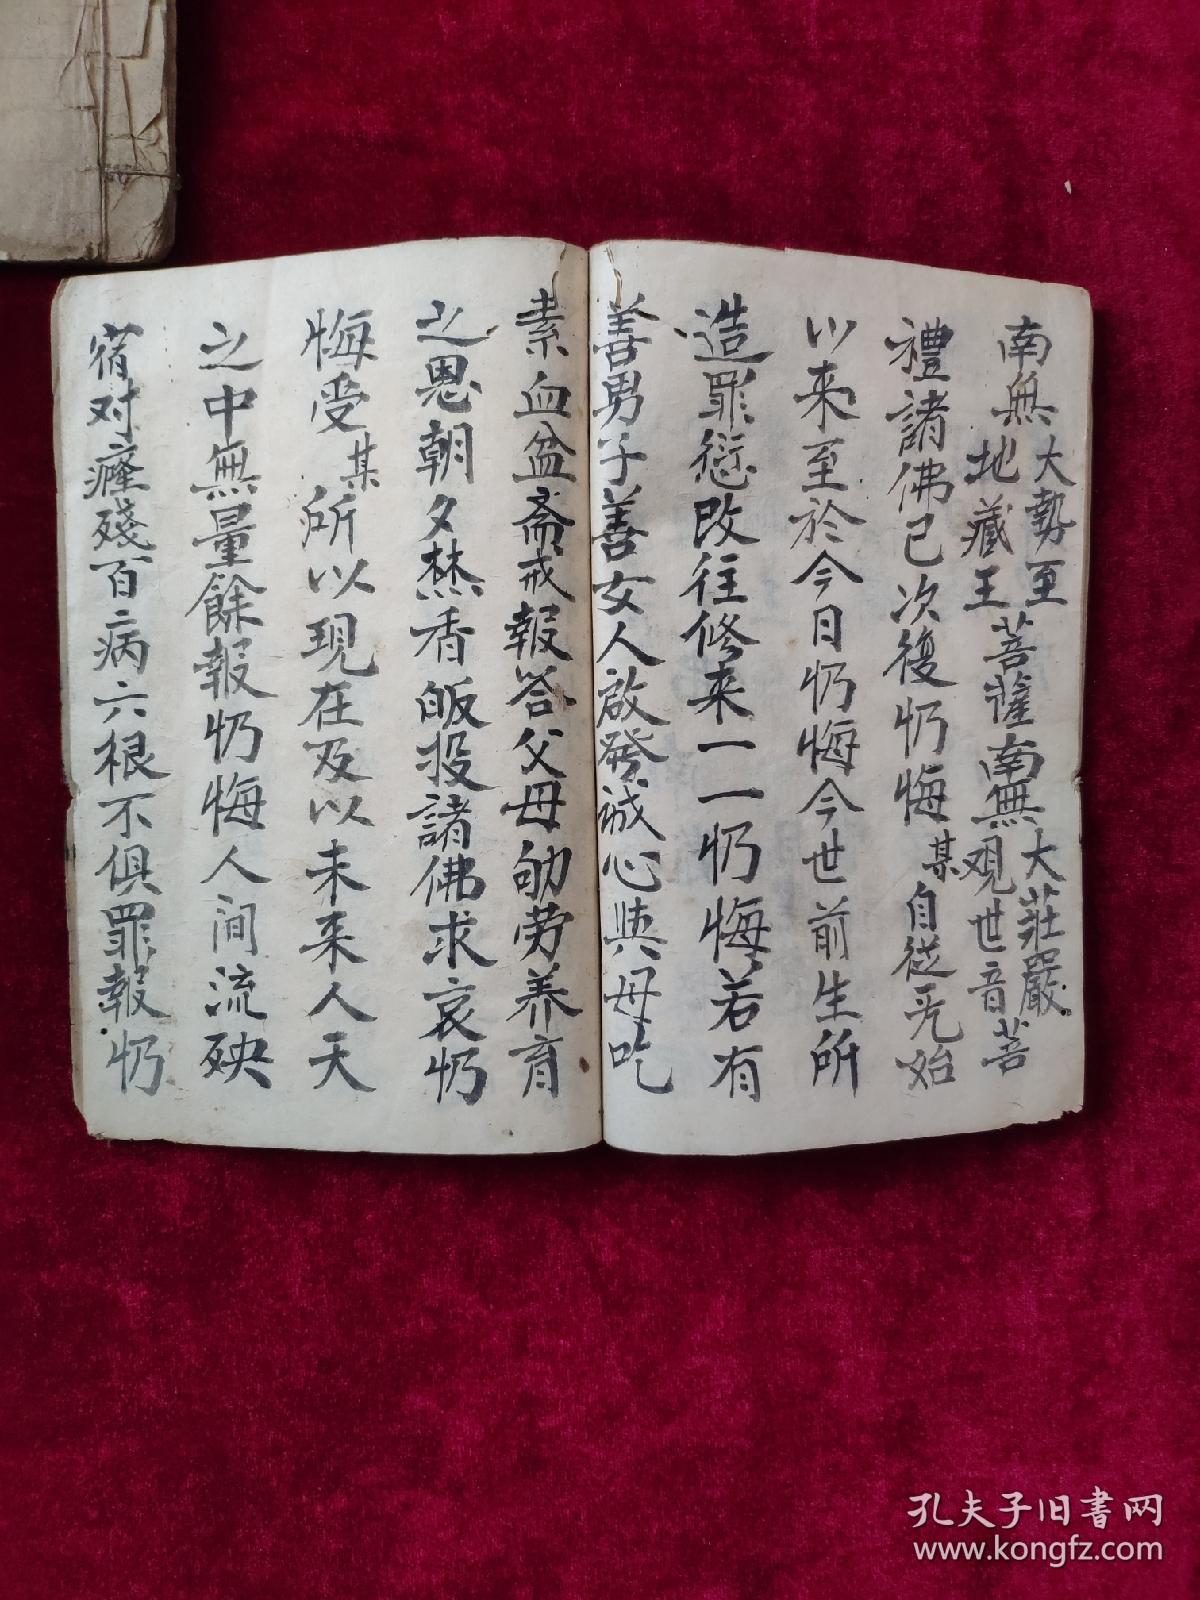 南無大勢至地藏王菩薩南無大莊嚴觀世音菩
禮諸佛已次復忏悔某自從无始
以来至於今日忏悔今世前生所
造罪愆改往修来一一忏悔若有
善男子善女人啟發誠心與母吃
素血盆斋戒報答父母劬劳养育
之恩朝夕焚香皈投諸佛求哀忏
悔受某所以現在及以未来人天
之中無量餘報忏悔人间流殃
宿对癃殘百病六根不俱罪報忏
孔夫子旧书网
www.kongfz.com